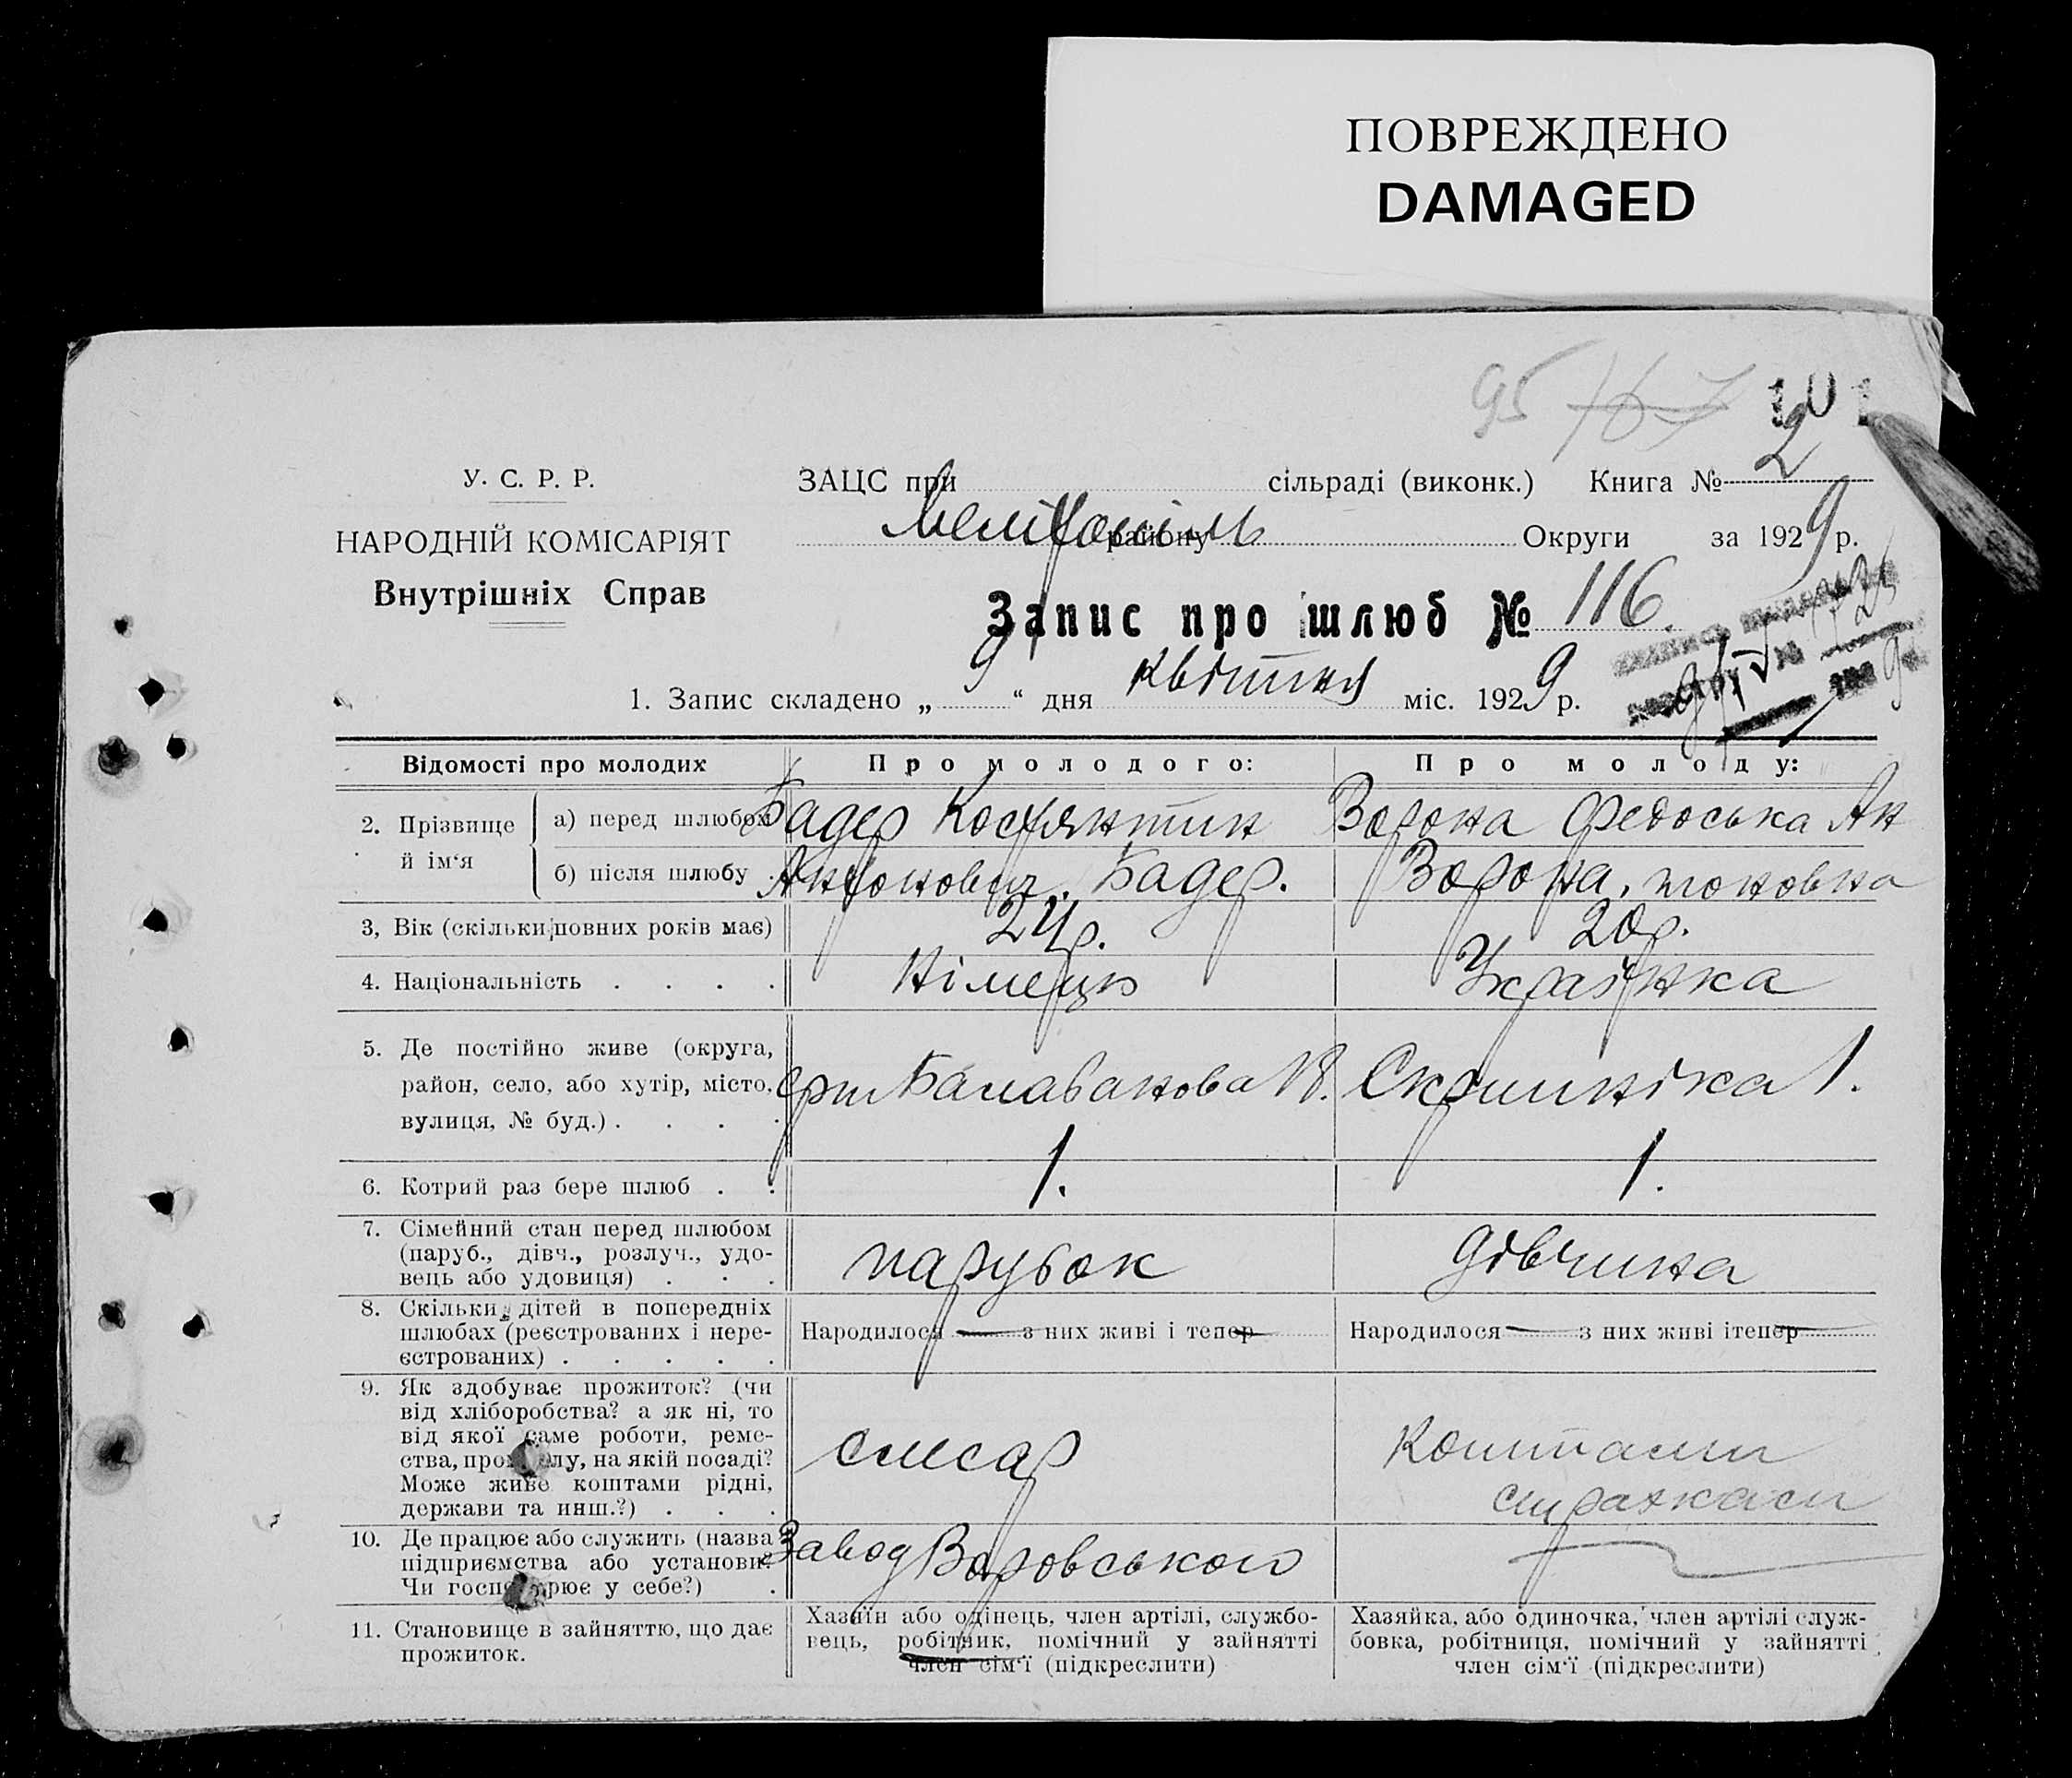 ПОВРЕЖДЕНО
DAMAGED
95 167 101
У. С. Р. Р.
НАРОДНІЙ КОМІСАРІЯТ
Внутрішніх Справ
ЗАЦС при сільраді (виконк.) Книга № 2
Мелітопіль району Округи за 1929 р.
Запис про шлюб № 116.
1. Запис складено „ 9 “ дня квітня міс. 1929 р.
Відомості про молодих
Про молодого:
Про молоду:
2. Прізвище й ім‘я
а) перед шлюбом
Бадер Костянтин
Ворона Федоська Ан
б) після шлюбу
Антонович. Бадер.
Ворона, тоновна
3, Вік (скільки повних років має)
24 р.
20 р.
4. Національність . . . .
Німець
Українка
5. Де постійно живе (округа,
район, село, або хутір, місто,
вулиця, № буд.) . . . .
Балабанова 18.
Скрипніка 1.
6. Котрий раз бере шлюб . .
1.
1.
7. Сімейний стан перед шлюбом
(паруб., дівч., розлуч., удо-
вець або удовиця) . . .
парубок
дівчина
8. Скільки дітей в попередніх
шлюбах (реєстрованих і нере-
єстрованих) . . . . .
Народилося — з них живі і тепер —
Народилося — з них живі ітепер —
9. Як здобуває прожиток? (чи
від хліборобства? а як ні, то
від якої саме роботи, реме-
ства, про лу, на якій посаді?
Може живе коштами рідні,
держави та инш.?) . . .
слюсар
Коштами
10. Де працює або служить (назва
підприємства або установи?
Чи госп рює у себе?) .
Завод Воровського
11. Становище в зайняттю, що дає
прожиток.
Хазяїн або одінець, член артілі, службо-
вець, робітник, помічний у зайнятті
член сім‘ї (підкреслити)
Хазяйка, або одиночка, член артілі служ-
бовка, робітниця, помічний у зайнятті
член сім‘ї (підкреслити)